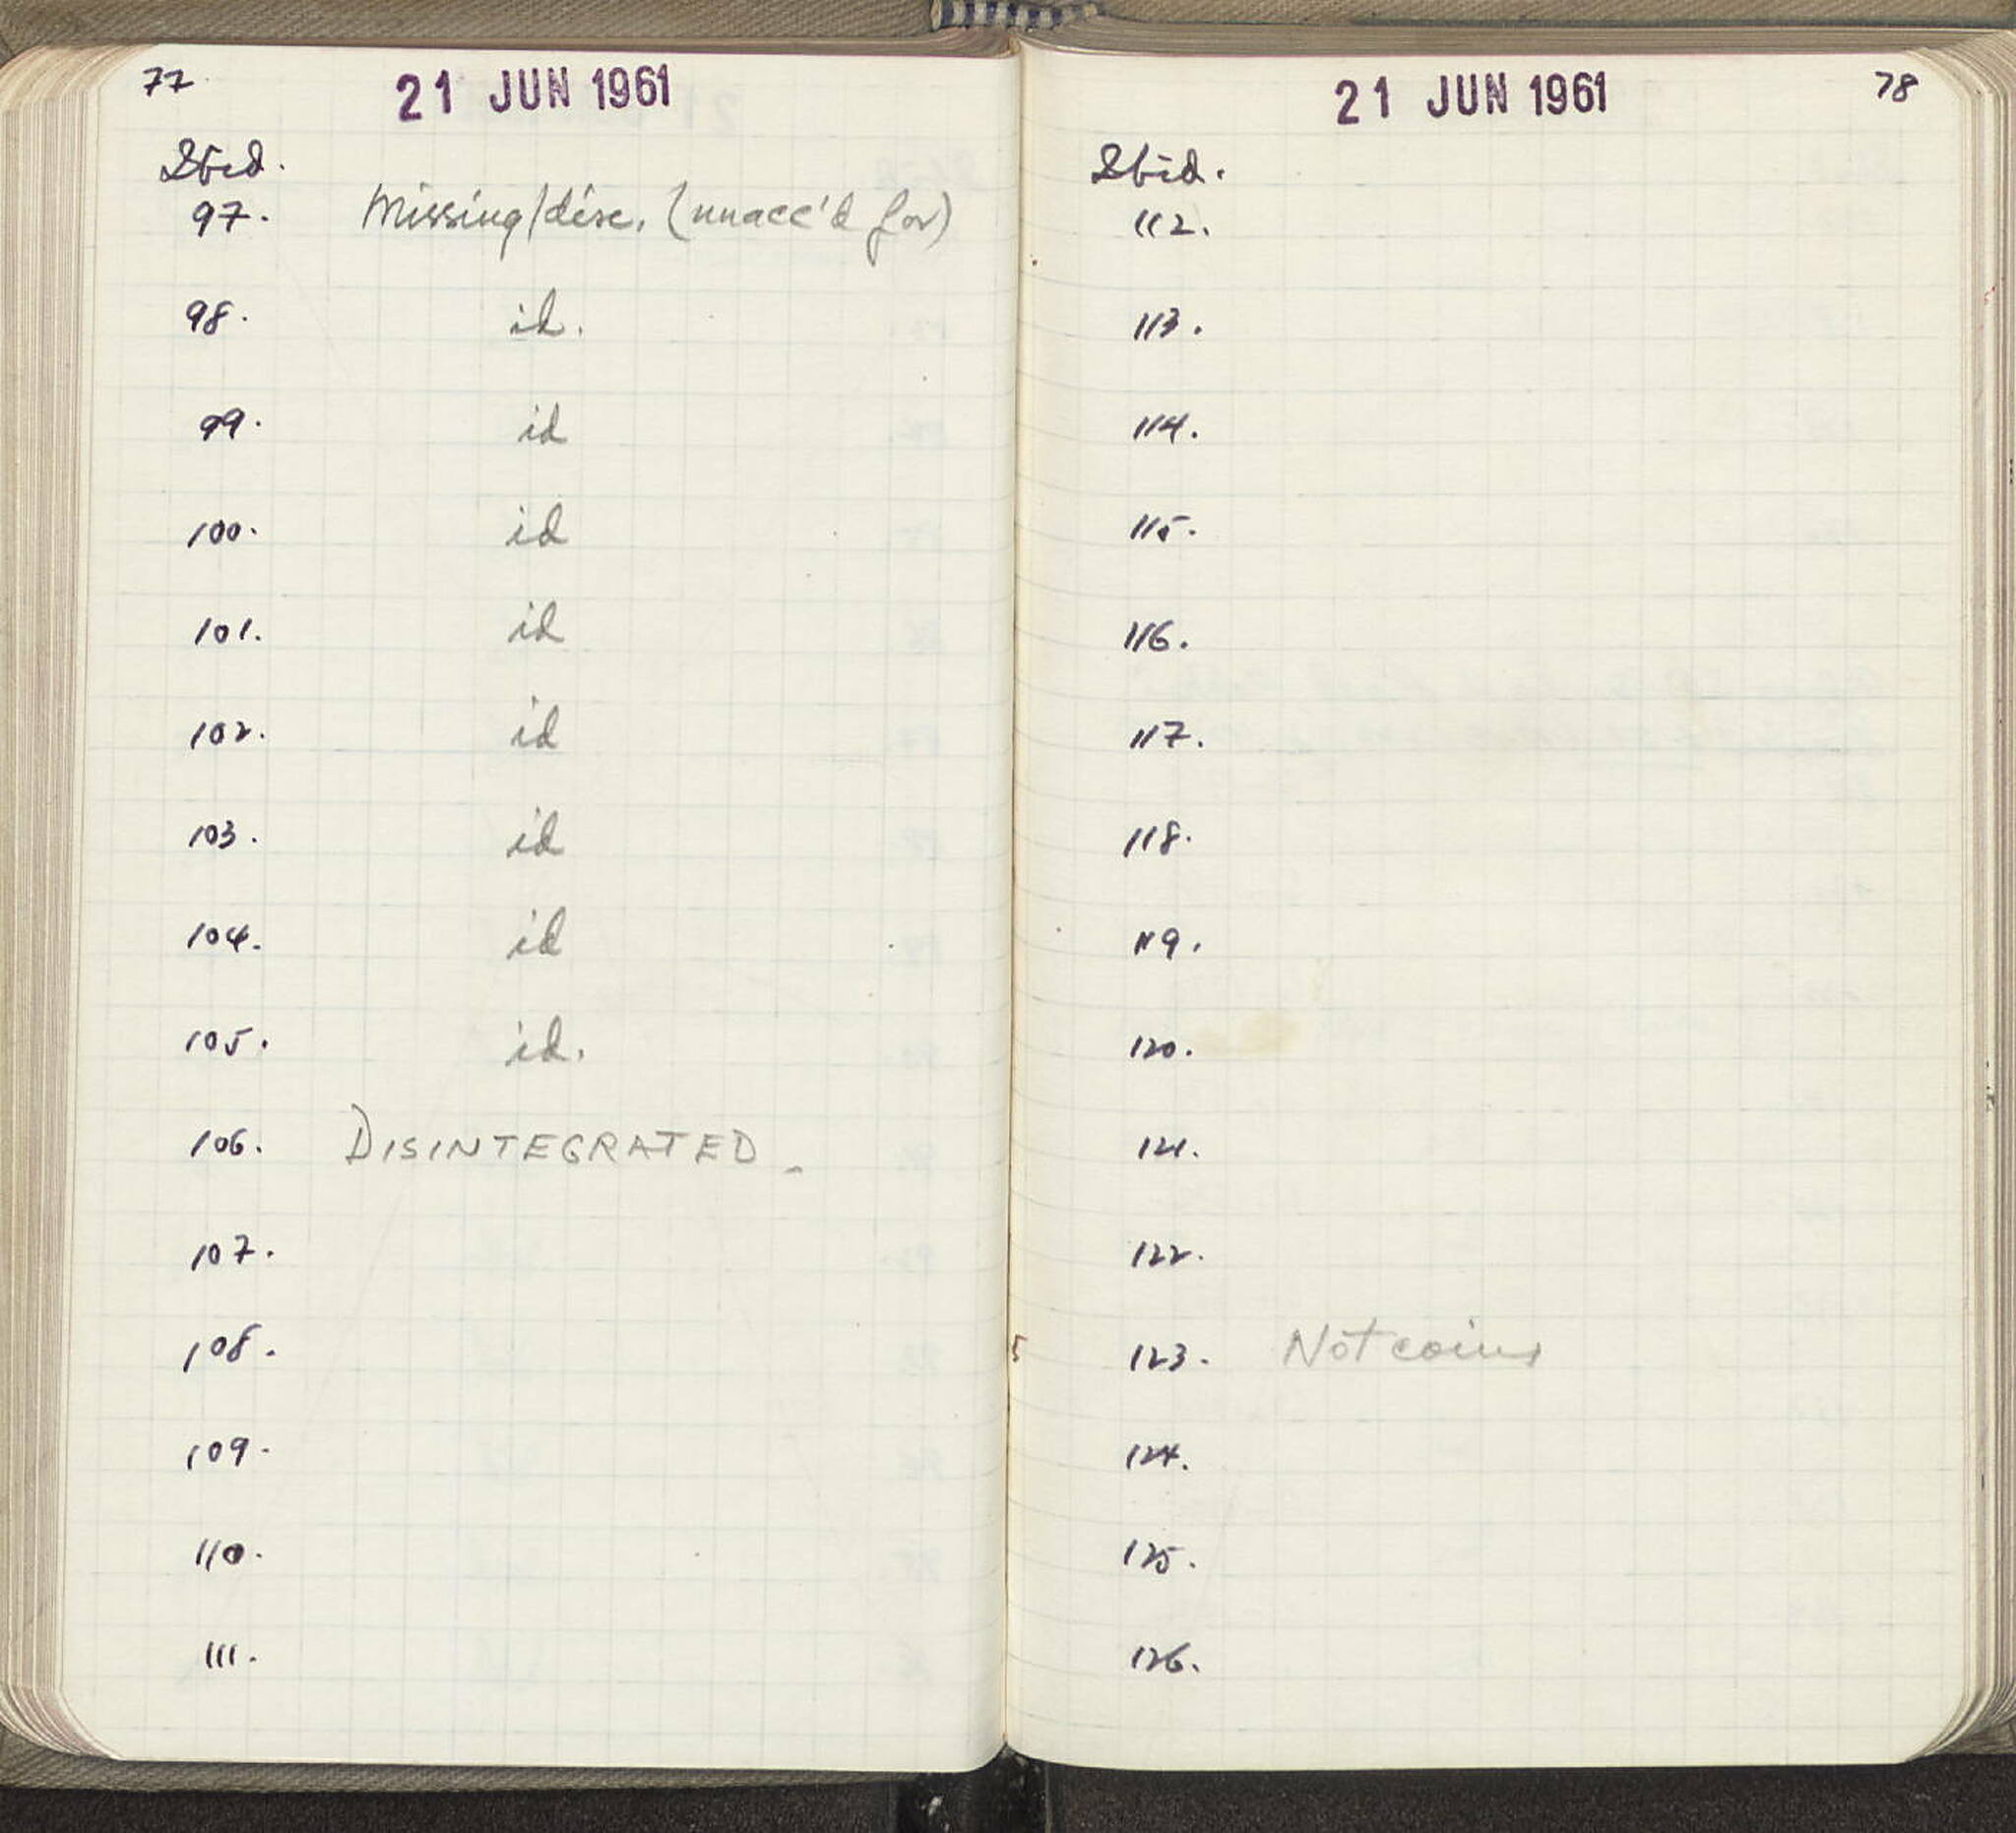 77 21 JUN 1961
Ibid.
97. Missing/disc. (unacc'd for)
98. id.
99. id
100. id
101. id
102. id
103. id
104. id
105. id.
106. DISINTEGRATED -
107.
108.
109.
110.
111.
21 JUN 1961 78
Ibid.
112.
113.
114.
115.
116.
117.
118.
119.
120.
121.
122.
123. Not coins
124.
125.
126.